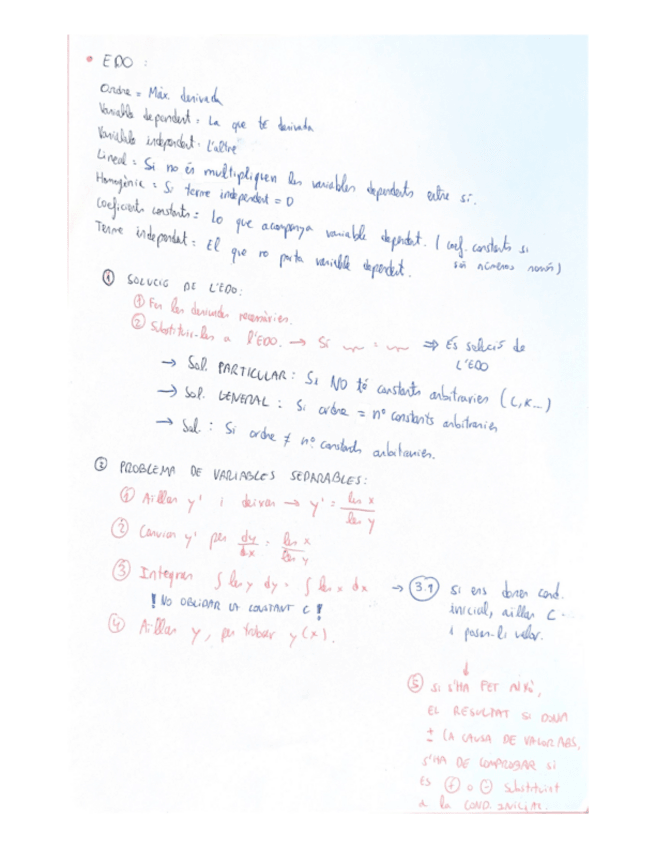 • EDO :
Ordre = Màx. derivada
Variable dependent = La que té derivada
Variable independent = L'altre
Lineal = Si no es multipliquen les variables dependents entre si.
Homogènia = Si terme independent = 0
Coeficients constants = Lo que acompanya variable dependent. (coef. constants si són números només)
Terme independent = El que no porta variable dependent.
① SOLUCIÓ DE L'EDO:
① Fer les derivades necessàries.
② Substituir-les a l'EDO. → Si ~ = ~ ⇒ És solució de L'EDO
→ Sol. PARTICULAR : Si NO té constants arbitraries (C, K...)
→ Sol. GENERAL : Si ordre = nº constants arbitraries
→ Sol. : Si ordre ≠ nº constants arbitraries.
② PROBLEMA DE VARIABLES SEPARABLES:
① Aïllar y' i deixar → y' = les x / les y
② Canviar y' per dy/dx = les x / les y
③ Integrar ∫ les y dy = ∫ les x dx → 3.1 Si ens donen cond.
inicial, aïllar C
i posar-li valor.
! NO OBLIDAR LA CONSTANT C !
④ Aïllar y, per trobar y(x).
↓
⑤ SI S'HA FET AIXÒ,
EL RESULTAT SI DONA
± (A CAUSA DE VALOR ABS,
S'HA DE COMPROBAR SI
ÉS ⊕ o ⊖ substituint
a la COND. INICIAL.